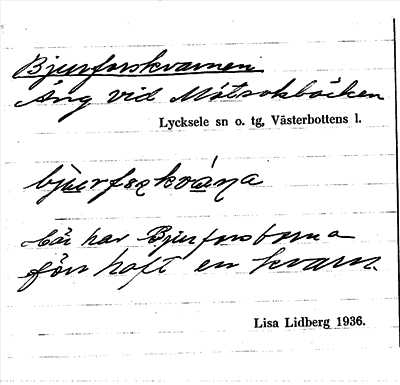 Bjurforskvarnen
Äng vid Mötsokbäcken
Lycksele sn o. tg, Västerbottens l.
här har Bjurforsborna
förr haft en kvarn.
Lisa Lidberg 1936.